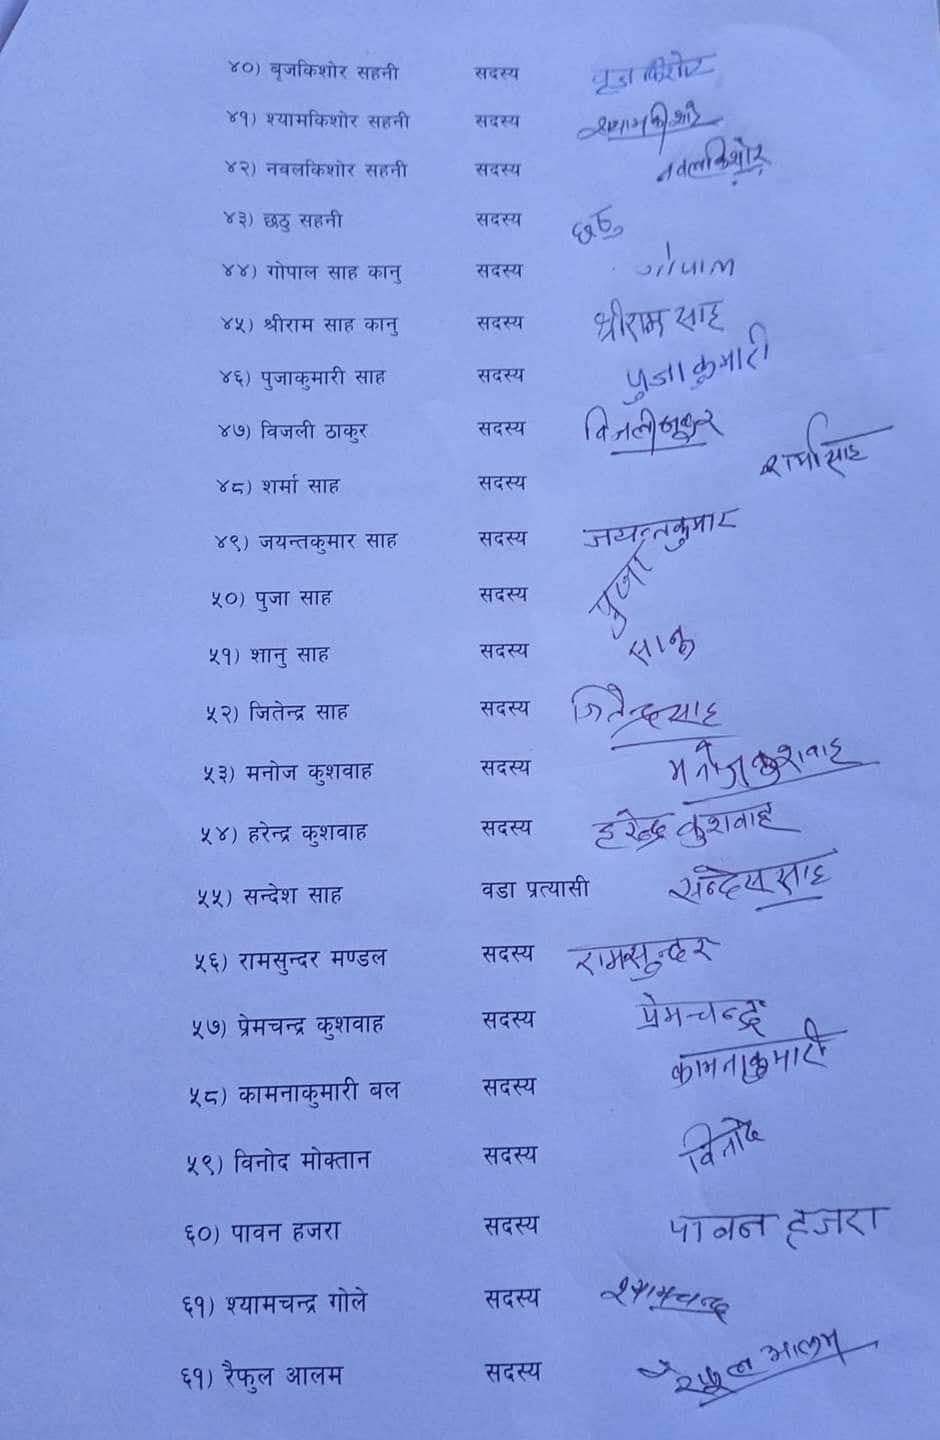 ४०) बृजकिशोर सहनी सदस्य बृजकिशोर
४१) श्यामकिशोर सहनी सदस्य श्यामकीशोर
४२) नवलकिशोर सहनी सदस्य नवलकिशोर
४३) छठु सहनी सदस्य छठु
४४) गोपाल साह कानु सदस्य गोपाल
४५) श्रीराम साह कानु सदस्य श्रीराम साह
४६) पुजाकुमारी साह सदस्य पुजा कुमारी
४७) विजली ठाकुर सदस्य विजली ठाकुर
४८) शर्मा साह सदस्य शर्मा साह
४९) जयन्तकुमार साह सदस्य जयन्तकुमार
५०) पुजा साह सदस्य पुजा
५१) शानु साह सदस्य सानु
५२) जितेन्द्र साह सदस्य जितेन्द्र साह
५३) मनोज कुशवाह सदस्य मनोज कुशवाह
५४) हरेन्द्र कुशवाह सदस्य हरेन्द्र कुशवाह
५५) सन्देश साह वडा प्रत्यासी सन्देस साह
५६) रामसुन्दर मण्डल सदस्य रामसुन्दर
५७) प्रेमचन्द्र कुशवाह सदस्य प्रेमचन्द्र
५८) कामनाकुमारी बल सदस्य कामनाकुमारी
५९) विनोद मोक्तान सदस्य विनोद
६०) पावन हजरा सदस्य पावन हजरा
६१) श्यामचन्द्र गोले सदस्य श्यामचन्द्र
६१) रैफुल आलम सदस्य रैफुल आलम